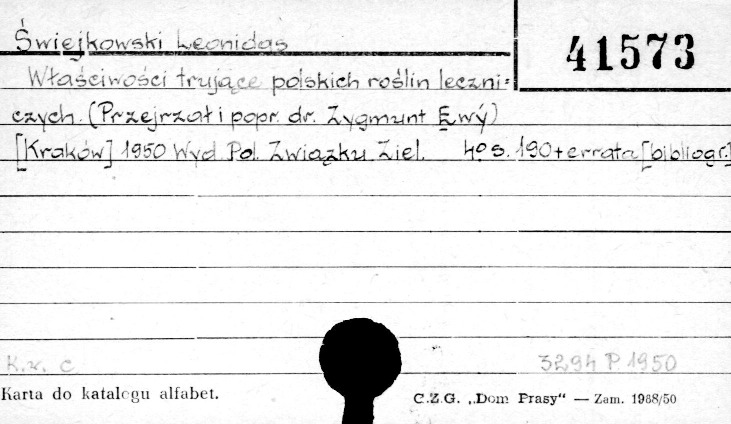 Świejkowski Leonidas
41573
Właściwości trujące polskich roślin leczni=
czych. (Przejrzał i popr. dr. Zygmunt Ewý)
[Kraków] 1950 Wyd. Pol. Związku Ziel. 4º s. 190+errata [bibliogr.]
K.w. c
3294 P 1950
Karta do katalogu alfabet.
C.Z.G. „Dom Prasy“ — Zam. 1968/50